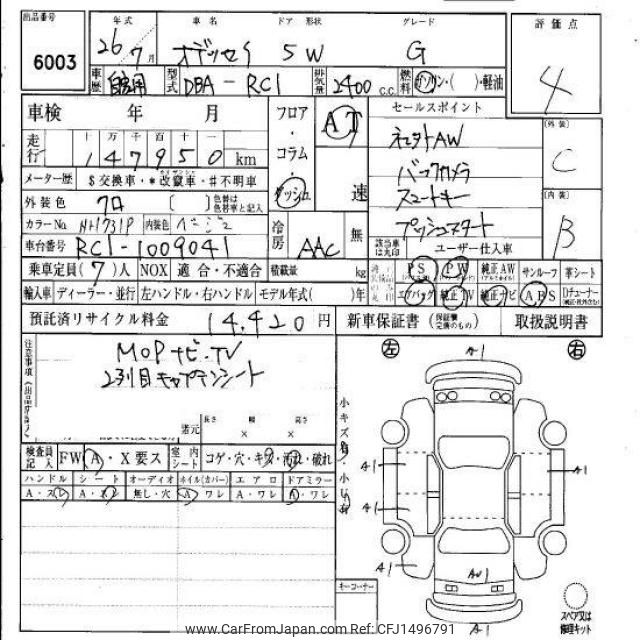 出品番号 年式 車名 ドア 形状 グレード 評価点
6003 26 7月 オデッセイ 5W G 4
車歴 自家用 型式 DBA-RC1 排気量 2400 C.C. 燃料 ガソリン・( )・軽油
車検 年 月 フロア・コラム・ダッシュ AT 速 セールスポイント
走行 十万千百十一 147950 km
社外AW
バックカメラ
スマートキー
プッシュスタート
外装 C
内装 B
メーター歴 $交換車・*改竄車・#不明車
外装色 クロ [ ] 色替は色替車と記入
カラーNo. NH731P 内装色 ベージュ
冷房 AAC 無
該当車は丸印 ユーザー仕入車
車台番号 RC1-1009041
乗車定員(7)人 NOX 適合・不適合 積載量 kg
PS PW 純正AW サンルーフ 革シート
輸入車 ディーラー・並行 左ハンドル・右ハンドル モデル年式( )年
エアバッグ 純正TV 純正ナビ ABS Dチューナー
預託済リサイクル料金 14,420円 新車保証書 (保証書完備のもの) 取扱説明書
注意事項
MOPナビ・TV
2列目キャプテンシート
諸元 長さ 幅 高さ
× ×
左 右
検査員記入 FW A・X要ス 室内シート コゲ・穴・キズ・汚れ・破れ
ハンドル シート オーディオ ホイル(カバー) エアロ ドアミラー
A・スレ A・スレ 無し・穴 A・ワレ A・ワレ A・ワレ
A1
A1
A1
A1
A1
A1
A1
AU1
A1
キーコーナー
スペア又は修理キット
www.CarFromJapan.com Ref: CFJ1496791